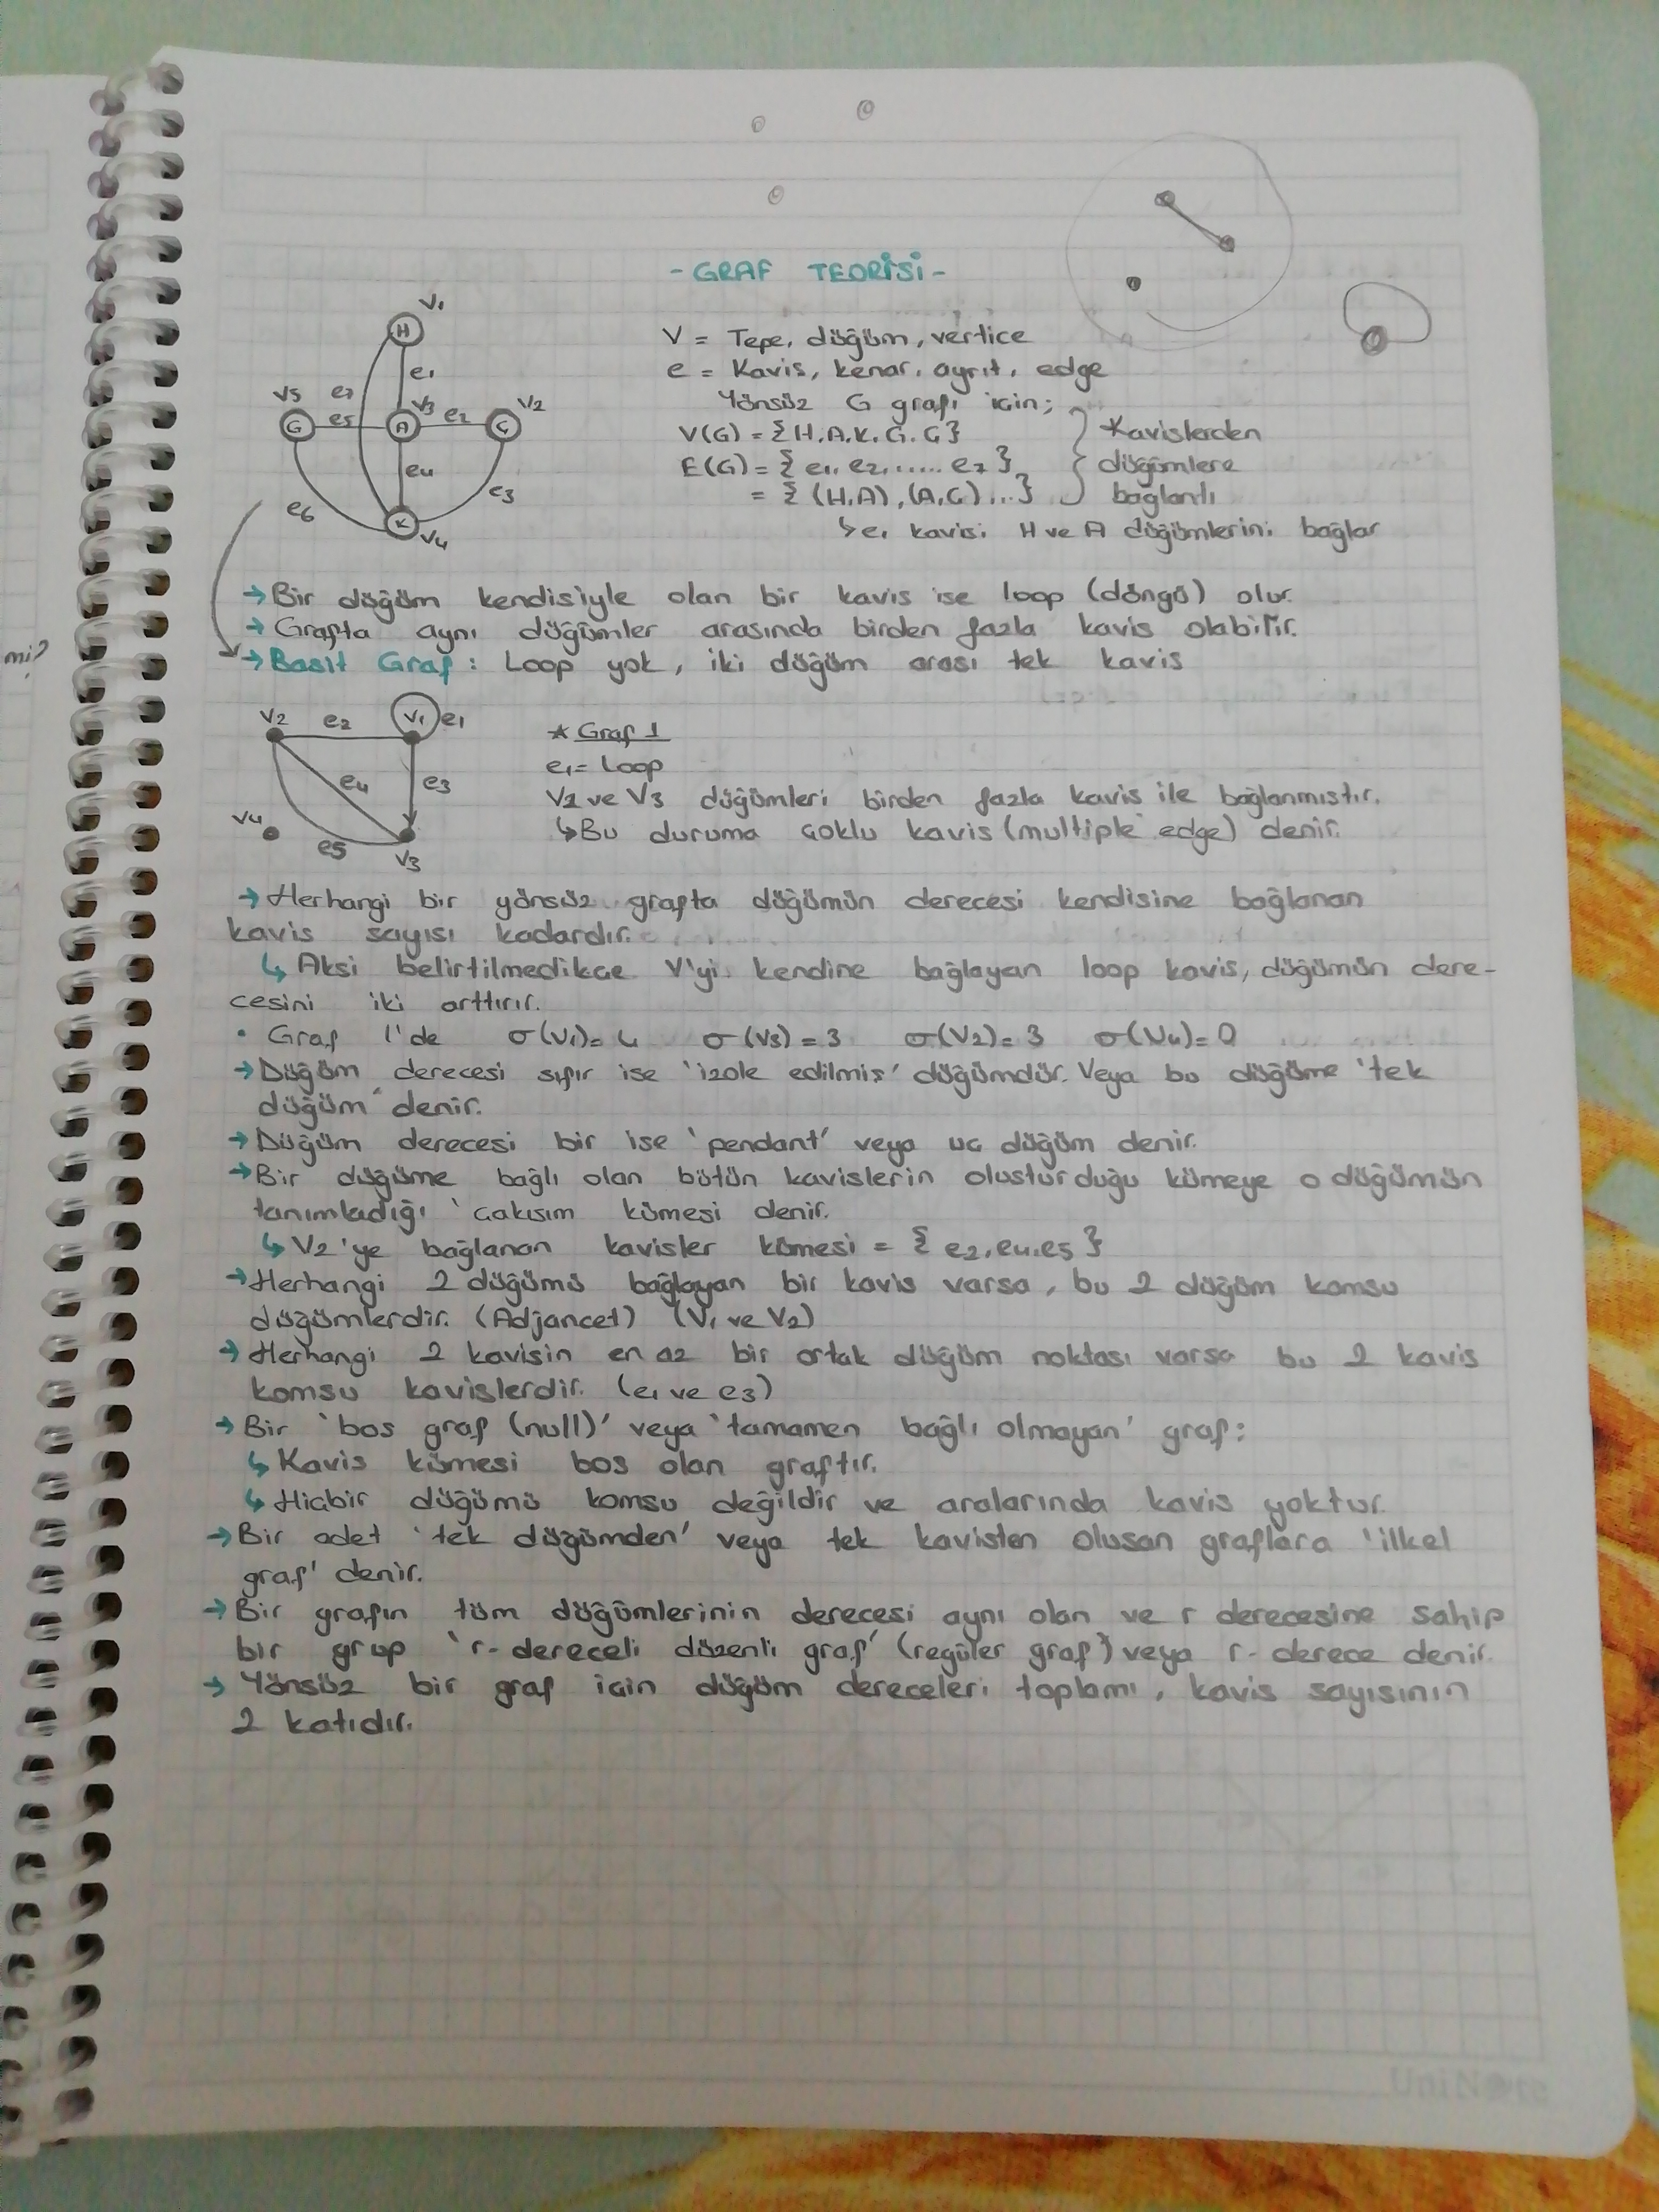 mi?
- GRAF TEORİSİ -
V1
H
e1
V5 e7 V3 e2 V2
G e5 A Ç
e4
e3
e6
K V4
V = Tepe, düğüm, vertice
e = Kavis, kenar, ayrıt, edge
Yönsüz G grafı için;
V(G) = {H,A,K,G,Ç}
E(G) = {e1, e2, ..... e7}
= {(H,A), (A,Ç) ...}
Kavislerden
düğümlere
bağlantı
↳ e1 kavisi H ve A düğümlerini bağlar
→ Bir düğüm kendisiyle olan bir kavis ise loop (döngü) olur.
→ Grafta aynı düğümler arasında birden fazla kavis olabilir.
→ Basit Graf: Loop yok, iki düğüm arası tek kavis
V2 e2 V1 e1
e4 e3
V4
e5 V3
* Graf 1
e1 = Loop
V2 ve V3 düğümleri birden fazla kavis ile bağlanmıştır.
↳ Bu duruma çoklu kavis (multiple edge) denir.
→ Herhangi bir yönsüz grafta düğümün derecesi kendisine bağlanan
kavis sayısı kadardır.
↳ Aksi belirtilmedikçe V'yi kendine bağlayan loop kavis, düğümün dere-
cesini iki arttırır.
• Graf 1'de σ(V1)= 4 σ(V3) = 3 σ(V2)= 3 σ(V4)= 0
→ Düğüm derecesi sıfır ise 'izole edilmiş' düğümdür. Veya bu düğüme 'tek
düğüm' denir.
→ Düğüm derecesi bir ise 'pendant' veya uç düğüm denir.
→ Bir düğüme bağlı olan bütün kavislerin oluşturduğu kümeye o düğümün
tanımladığı 'çakışım kümesi denir.
↳ V2'ye bağlanan kavisler kümesi = { e2,e4,e5 }
→ Herhangi 2 düğümü bağlayan bir kavis varsa, bu 2 düğüm komşu
düğümlerdir. (Adjancet) (V1 ve V2)
→ Herhangi 2 kavisin en az bir ortak düğüm noktası varsa bu 2 kavis
komşu kavislerdir. (e1 ve e3)
→ Bir 'boş graf (null)' veya 'tamamen bağlı olmayan' graf:
↳ Kavis kümesi boş olan graftır.
↳ Hiçbir düğümü komşu değildir ve aralarında kavis yoktur.
→ Bir adet 'tek düğümden' veya tek kavisten oluşan graflara 'ilkel
graf' denir.
→ Bir grafın tüm düğümlerinin derecesi aynı olan ve r derecesine sahip
bir grup 'r-dereceli düzenli graf' (regüler graf) veya r-derece denir.
→ Yönsüz bir graf için düğüm dereceleri toplamı, kavis sayısının
2 katıdır.
UniNote